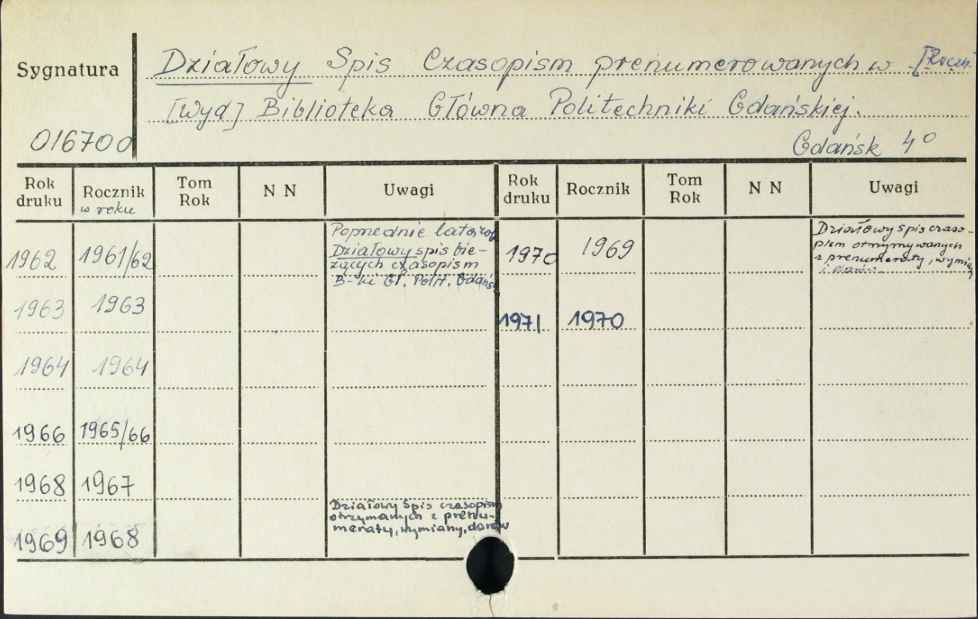 Sygnatura
016700
Działowy Spis Czasopism prenumerowanych w
[wyd] Biblioteka Główna Politechniki Gdańskiej.
Gdańsk 4°
Rok druku Rocznik w roku Tom Rok N N Uwagi Rok druku Rocznik Tom Rok N N Uwagi
1962 1961/62
Działowy spis bie-
żących czasopism
B-ki Gł. Polit. Gdańs
1970 1969
Działowy spis czaso-
pism otrzymywanych
z prenumeraty, wymia
1963 1963
1971 1970
1964 1964
1966 1965/66
1968 1967
1969 1968
Działowy Spis czasopism
otrzymanych z prenu-
meraty, wymiany, darów